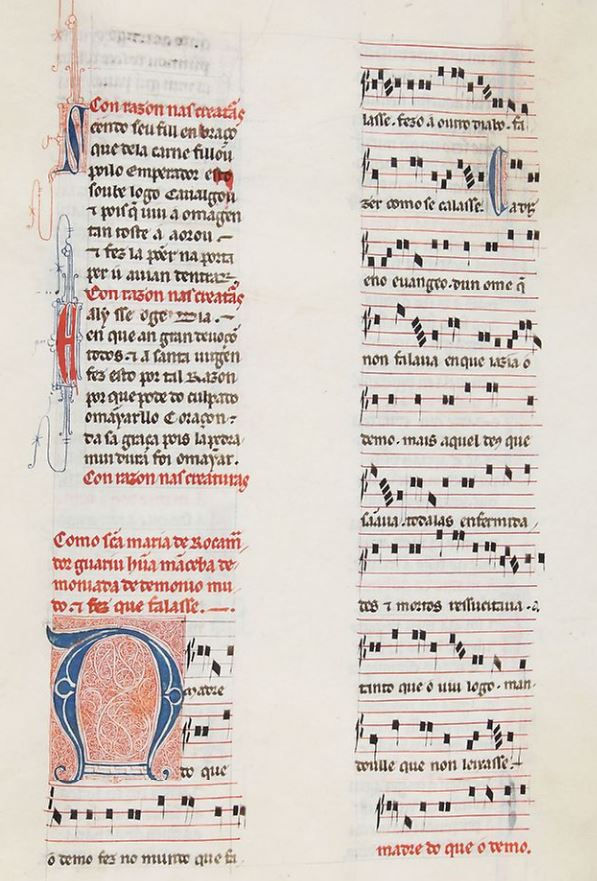 Con razon nas creat̃as
cendo seu fill en braço
que dela carne fillou
polo Emperador esto
soube logo Caualgou
⁊ pois q̃ uiu a omagen
tan toste a aorou
⁊ fez la põer na porta
per u auian dentrar
Con razon nas creat̃as
Aly sse oge dia.
en que an gran deuoçõ
todos. ⁊ a santa uirgen
fez esto por tal Razon
por que pode do culpado
omãyarllo Coraçon
da sa graça pois la pedra
mui dura foi omãyar.
Con razon nas creaturas
Como sc̃a maria de Rocam̃
dor guariu hũa mãceba de
moniada de demonio mu
do. ⁊ fez que falasse.
Madre
do que
o demo fez no mundo que fa
lasse. fezo a outro diabo. fa
zer como se calasse. Cadr̃
eno euangeo. dun ome q̃
non falaua en que iazia o
demo. mais aquel rey que
sãaua. todalas enfermida
des ⁊ mortos ressucitaua.
tanto que o uiu logo. man
doulle que non leixasse.
madre do que o demo.